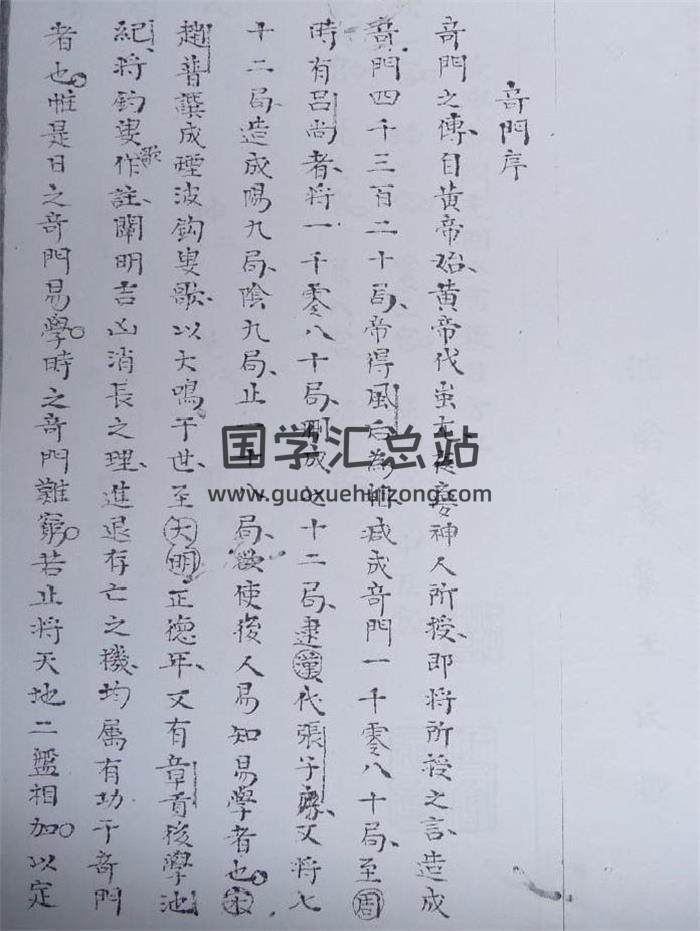 奇門序
奇門之傳自黃帝始黃帝代蚩尤夜夢神人所授即將所授之言造成
奇門四千三百二十局帝得風后為相減成奇門一千零八十局至周
時有呂尚者將一千零八十局刪成七十二局逮漢代張子房又將七
十二局造成陽九局陰九局止一十八局欲使後人易知易學者也宋
趙普譔成煙波釣叟歌以大鳴于世至大明正德年又有章貢後學池
紀將釣叟歌作註闡明吉凶消長之理進退存亡之機均屬有功于奇門
者也惟是日之奇門易學時之奇門難窮若止將天地二盤相加以定
国学汇总站
www.guoxuehuizong.com